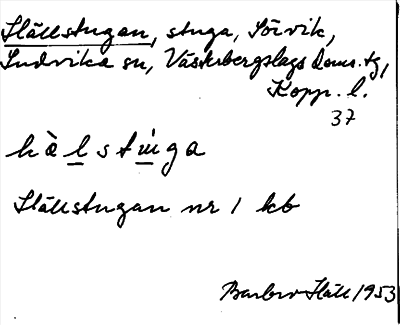 Hällstugan, stuga, Sörvik,
Ludvika sn, Västerbergslags doms. tg,
Kopp. l.
37
hä̀lstúga
Hällstugan nr 1 kb
Barbro Häll 1953